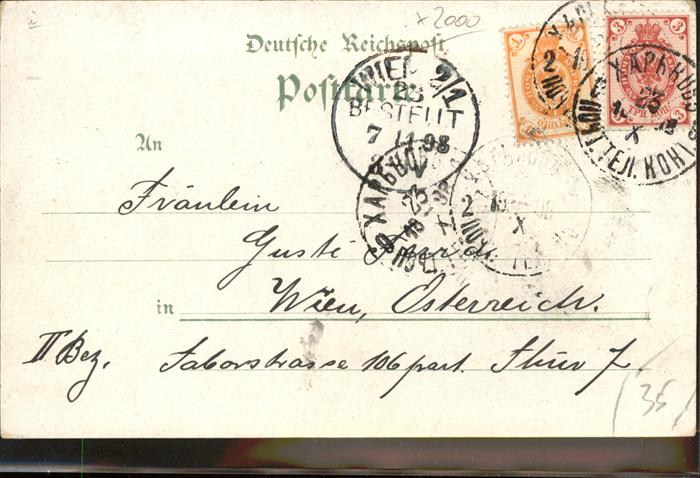 ×2000
Deutsche Reichspost
Postkarte
WIEN 2/1
23
BESTELLT
7 11 98
V
ХАРЬКОВЪ
23
X
98
ПОЧ. ТЕЛ. КОНТ
2
1
3
3
ТРИ КОП
An
Fräulein
Gusti
in Wien, Österreich.
II Bez, Taborstrasse 106 part. Thür 7.
(35)